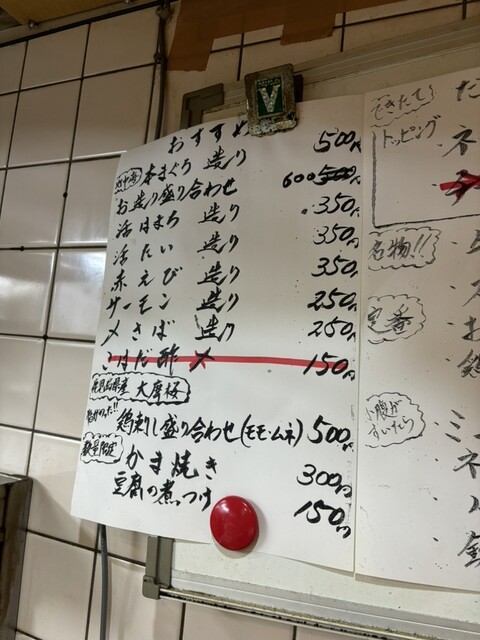 おすすめ
地中海 本まぐろ 造り 500円
お造り盛り合わせ 600円
活はまち 造り 350円
活たい 造り 350円
赤えび 造り 350円
サーモン 造り 250円
〆さば 造り 250円
こはだ酢〆 150円
鹿児島県産 大摩桜
鶏刺し盛り合わせ(モモ・ムネ) 500円
数量限定 かま焼き 300円
豆腐の煮つけ 150円
できたて!
トッピング
名物!!
定番
小腹がすいたら